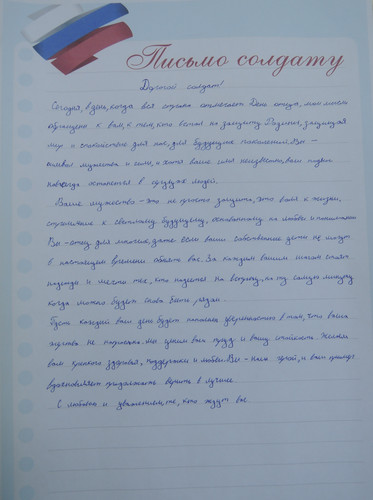 Письмо солдату
Дорогой солдат!
Сегодня, в день, когда вся страна отмечает День отца, мои мысли
обращены к вам, к тем, кто встал на защиту Родины, защищая
мир и спокойствие для нас, для будущего поколения. Вы -
символ мужества и силы, и хотя ваше имя неизвестно, ваш подвиг
навсегда останется в сердцах людей.
Ваше мужество - это не просто защита, это воля к жизни,
стремление к светлому будущему, основанному на любви и понимании
Вы - отец для многих, даже если ваши собственные дети не могут
в настоящем времени обнять вас. За каждым вашим шагом стоят
надежды и мечты тех, кто надеется на встречу, на ту самую минуту
когда можно будет снова быть рядом.
Пусть каждый ваш день будет наполнен уверенностью в том, что ваша
жертва не напрасна. Мы ценим ваш труд и вашу стойкость. Желаем
вам крепкого здоровья, поддержки и любви. Вы - наш герой, и ваш пример
вдохновляет продолжать верить в лучшее.
С любовью и уважением, те, кто ждут вас